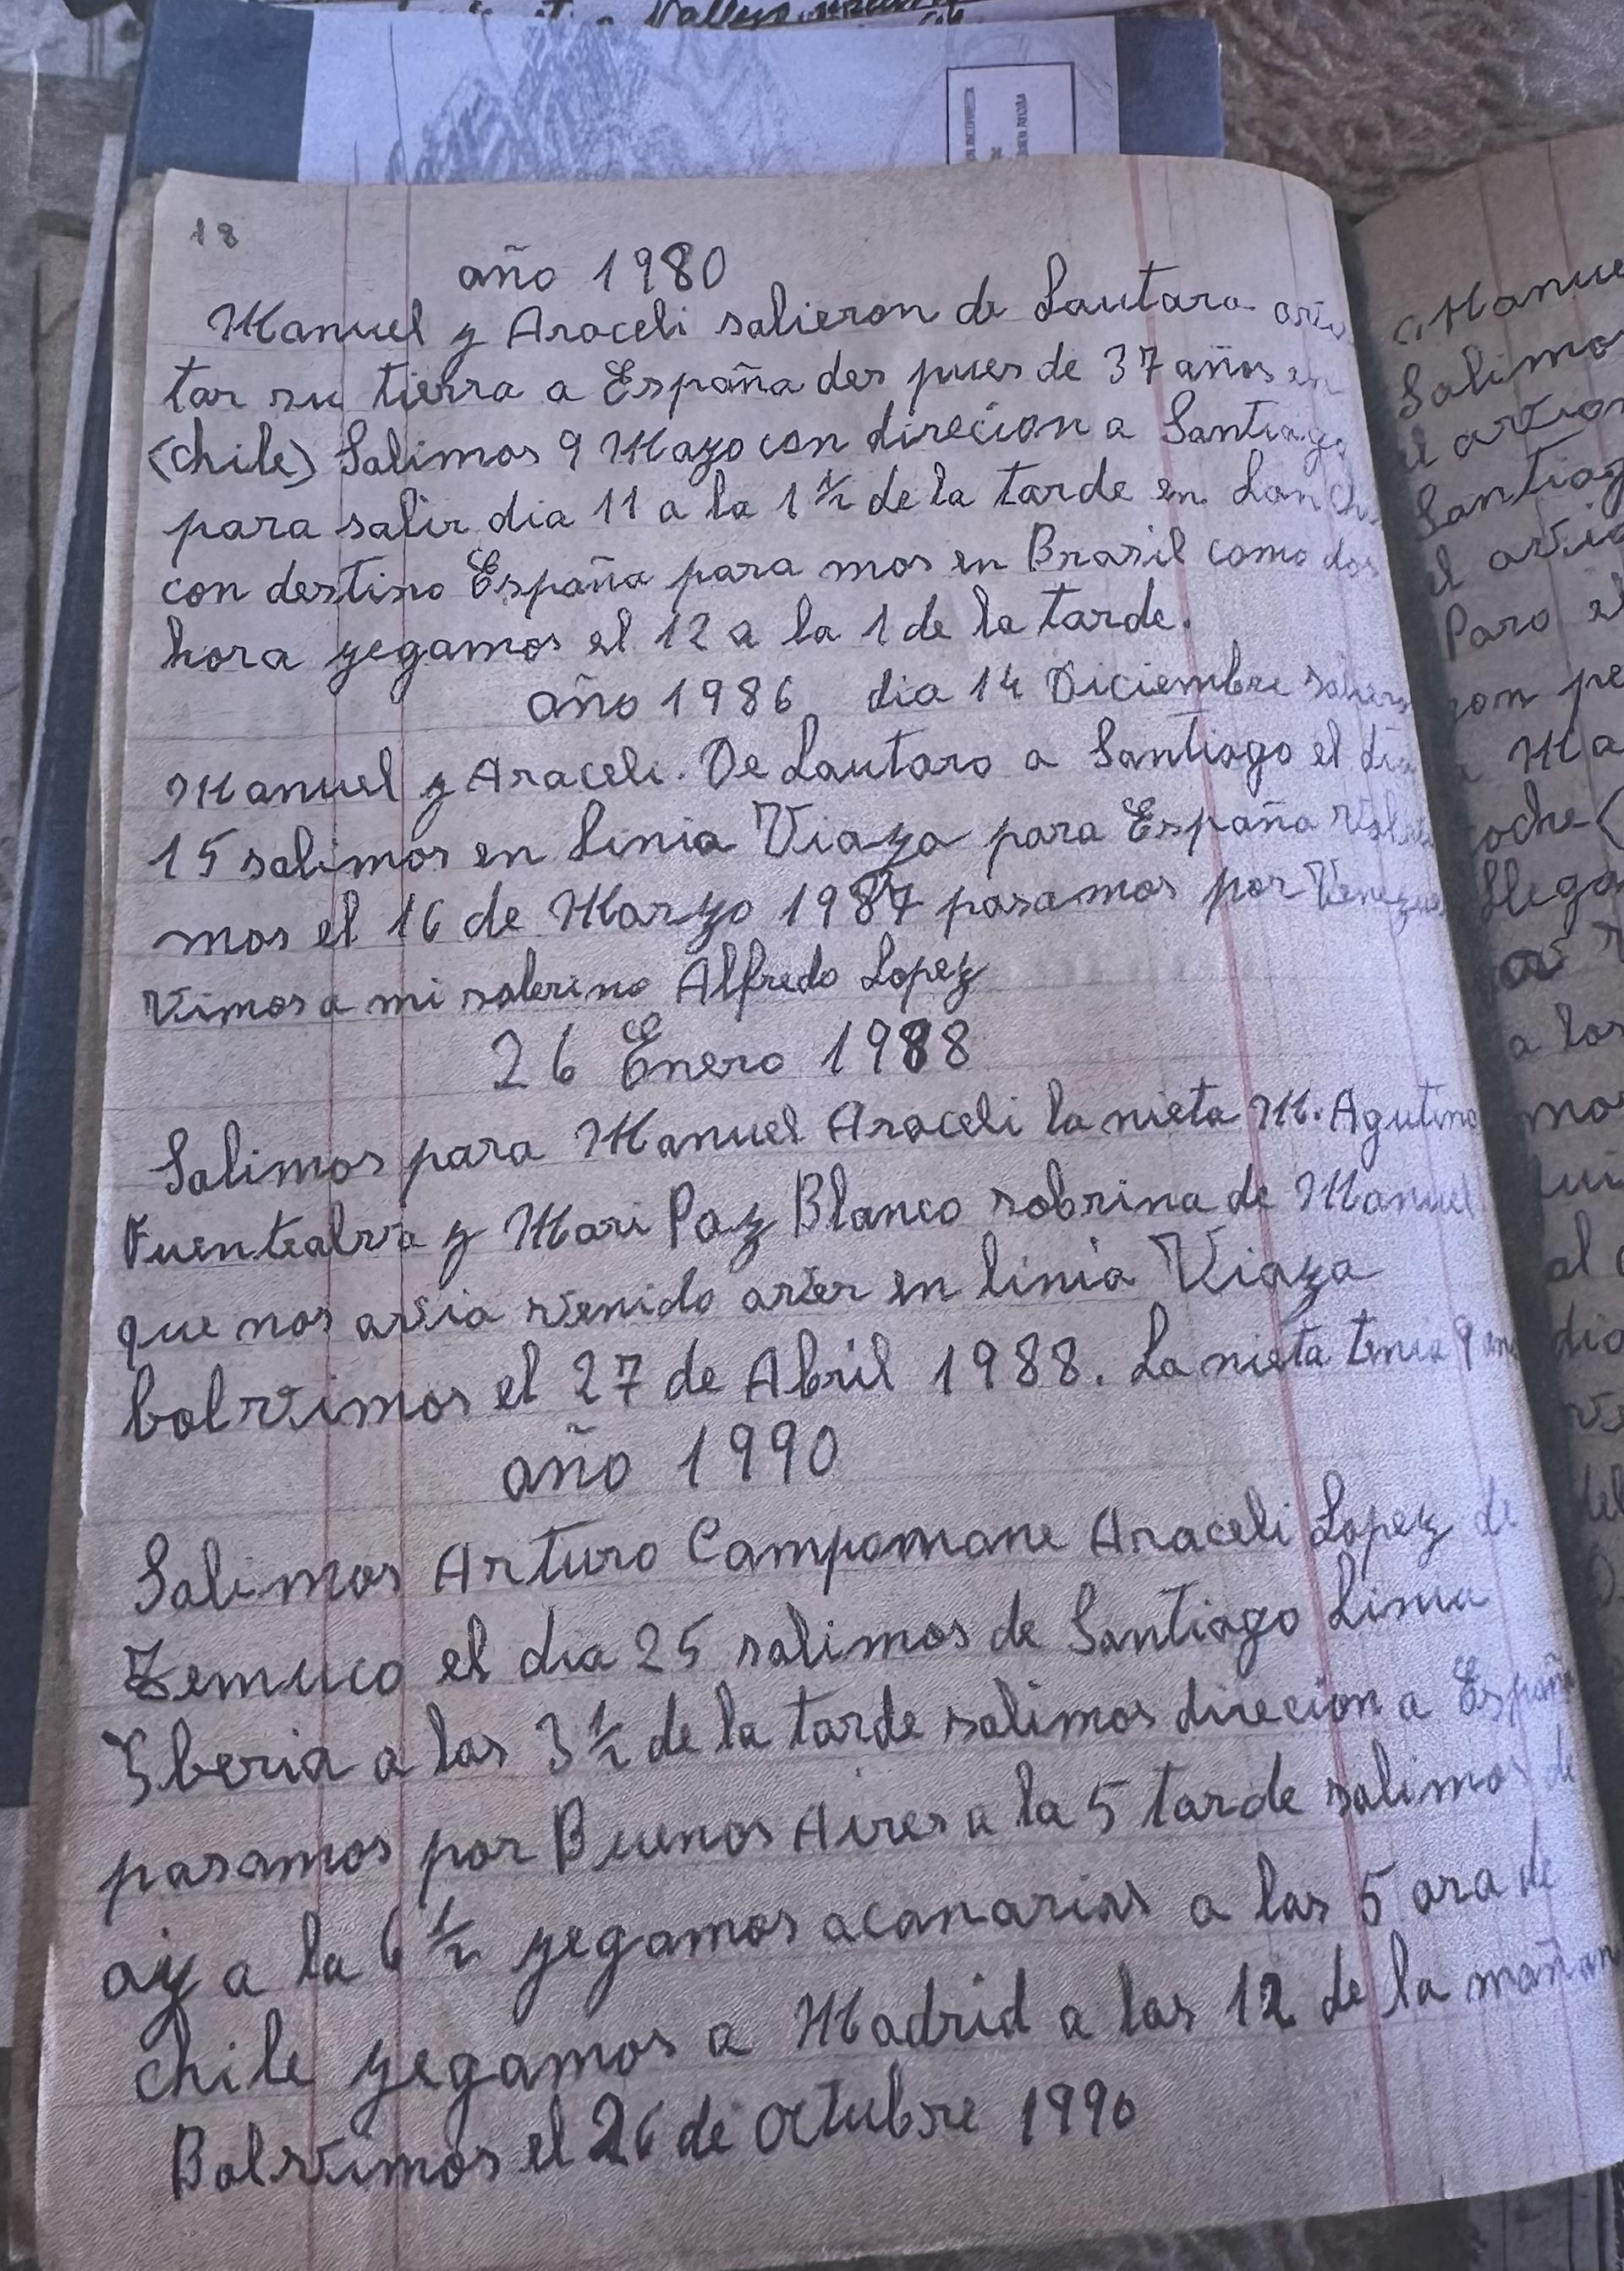 18
año 1980
Manuel y Araceli salieron de Lautaro
tar su tierra a España des pues de 37 años en
(chile) Salimos 9 Mayo con direcion a Santiago
para salir dia 11 a la 1 1/2 de la tarde en
con destino España para mos en Brasil como dos
hora yegamos el 12 a la 1 de la tarde.
año 1986 dia 14 Diciembre
Manuel y Araceli. De Lautaro a Santiago el dia
15 salimos en Linia Viaza para España
mos el 16 de Marzo 1987 pasamos por
Vimos a mi soberino Alfredo Lopez
26 Enero 1988
Salimos para Manuel Araceli la nieta M. Agutina
Fuentealva y Mari Paz Blanco sobrina de Manuel
que nos avia venido aver en linia Viaza
bolvimos el 27 de Abril 1988. La nieta tenia 9
año 1990
Salimos Arturo Campomane Araceli Lopez de
Temuco el dia 25 salimos de Santiago Linia
Iberia a las 3 1/2 de la tarde salimos direcion a España
pasamos por Buenos Aires a la 5 tarde salimos de
ay a la 6 1/2 yegamos acanarias a las 5 ora de
chile yegamos a Madrid a las 12 de la mañan
Bolvimos el 26 de octubre 1990
Manue
Salimo
Santiag
Paro el
a los